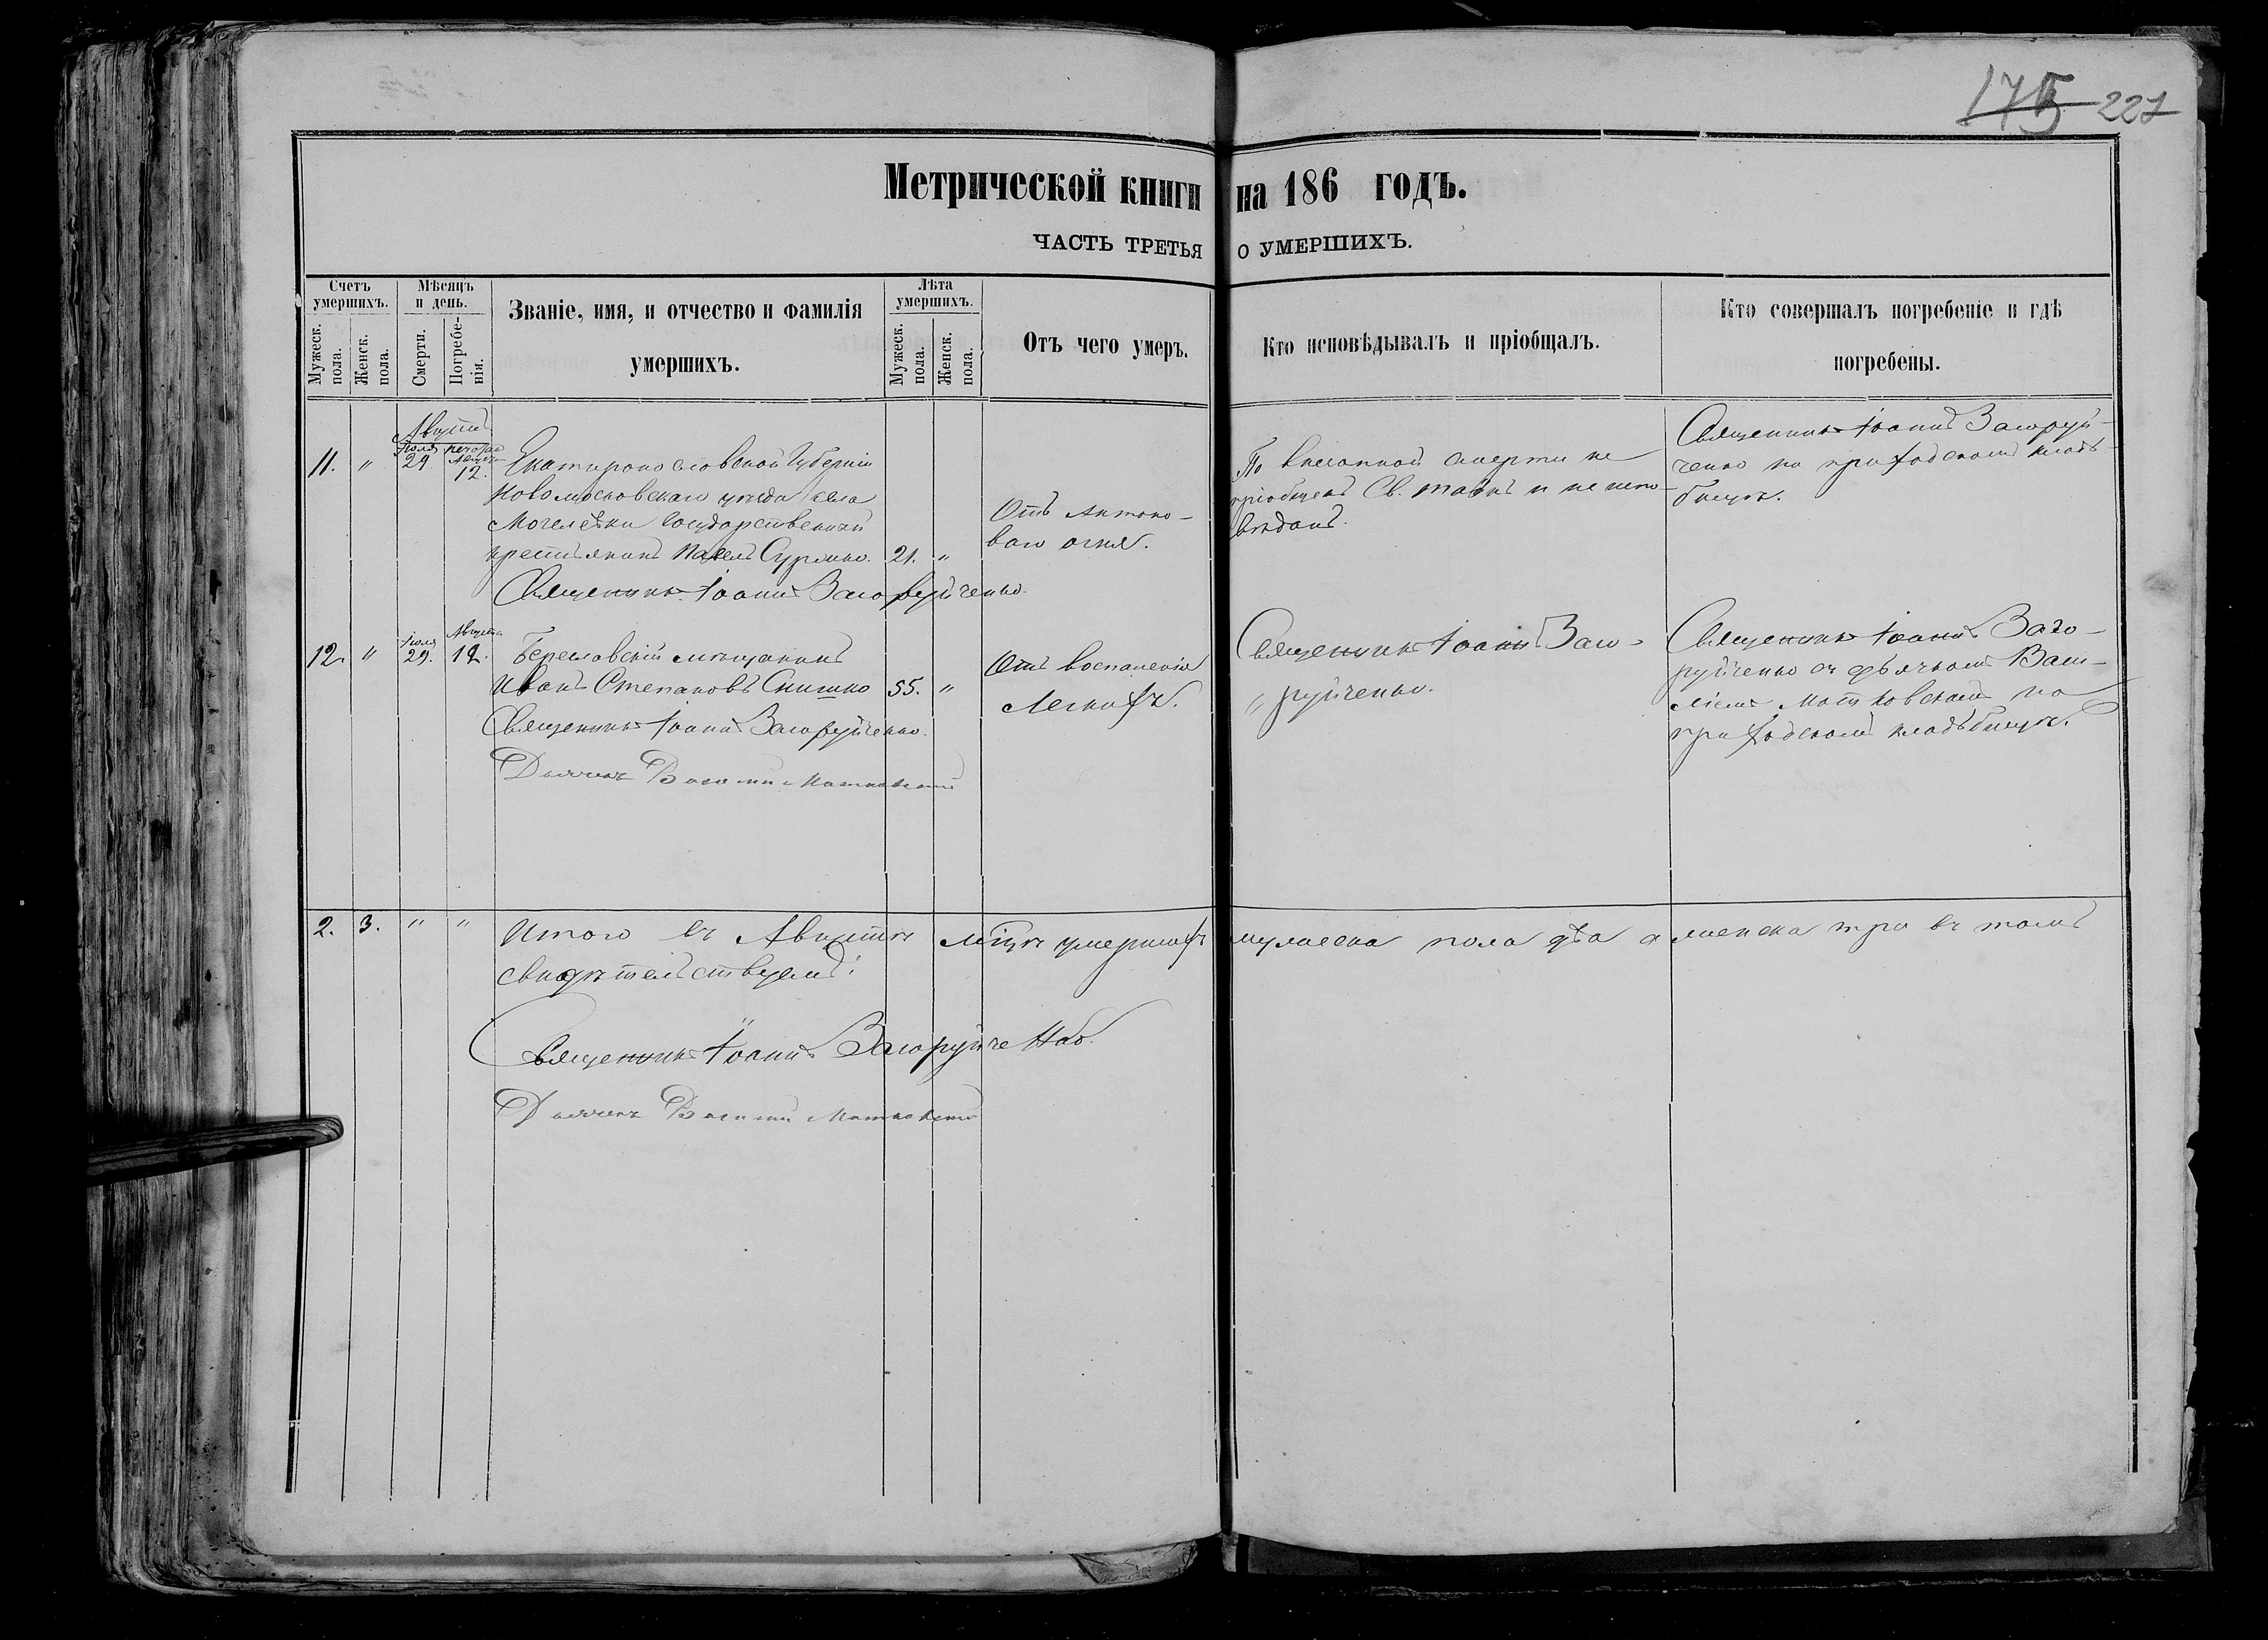 175 221
Метрической книги на 186 годъ.
ЧАСТЬ ТРЕТЬЯ О УМЕРШИХЪ.
Счетъ умершихъ.
Мѣсяцъ и день.
Званіе, имя, и отчество и фамилія умершихъ.
Лѣта умершихъ.
Отъ чего умеръ.
Кто исповѣдывалъ и пріобщалъ.
Кто совершалъ погребеніе и гдѣ погребены.
Мужеск. пола.
Женск. пола.
Смерти.
Погребенія.
Мужеск. пола.
Женск. пола.
Августъ
11. " Іюля 29 Августа 12.
Екатиринославской Губерніи
Новомосковскаго уѣзда села
государственный
крестьянинъ Павелъ 21. "
Священникъ Іоаннъ Загоруйченко.
Отъ Антоно-
ваго огня.
По внезапной смерти не
пріобщенъ Св. таинъ и не испо-
вѣданъ.
Священникъ Іоаннъ Загоруй-
ченко на приходскомъ клад-
бищѣ.
12. " Іюля 29. Августа 12.
Бериславскій мѣщанинъ
Иванъ Степановъ Снишко 55. "
Священникъ Іоаннъ Загоруйченко.
Дьячекъ Василій Матковскій
Отъ воспаленія
Легкихъ.
Священникъ Іоаннъ Заго-
" руйченко.
Священникъ Іоаннъ Заго-
руйченко съ дьячкомъ Васи-
ліемъ Матковскимъ на
приходскомъ кладбищѣ.
2. 3. " " Итого въ Августѣ мѣсяцѣ умершихъ мужеска пола два а женска три въ томъ
свидѣтельствуемъ:
Священникъ Іоаннъ Загоруйченко.
Дьячекъ Василій Матковскій